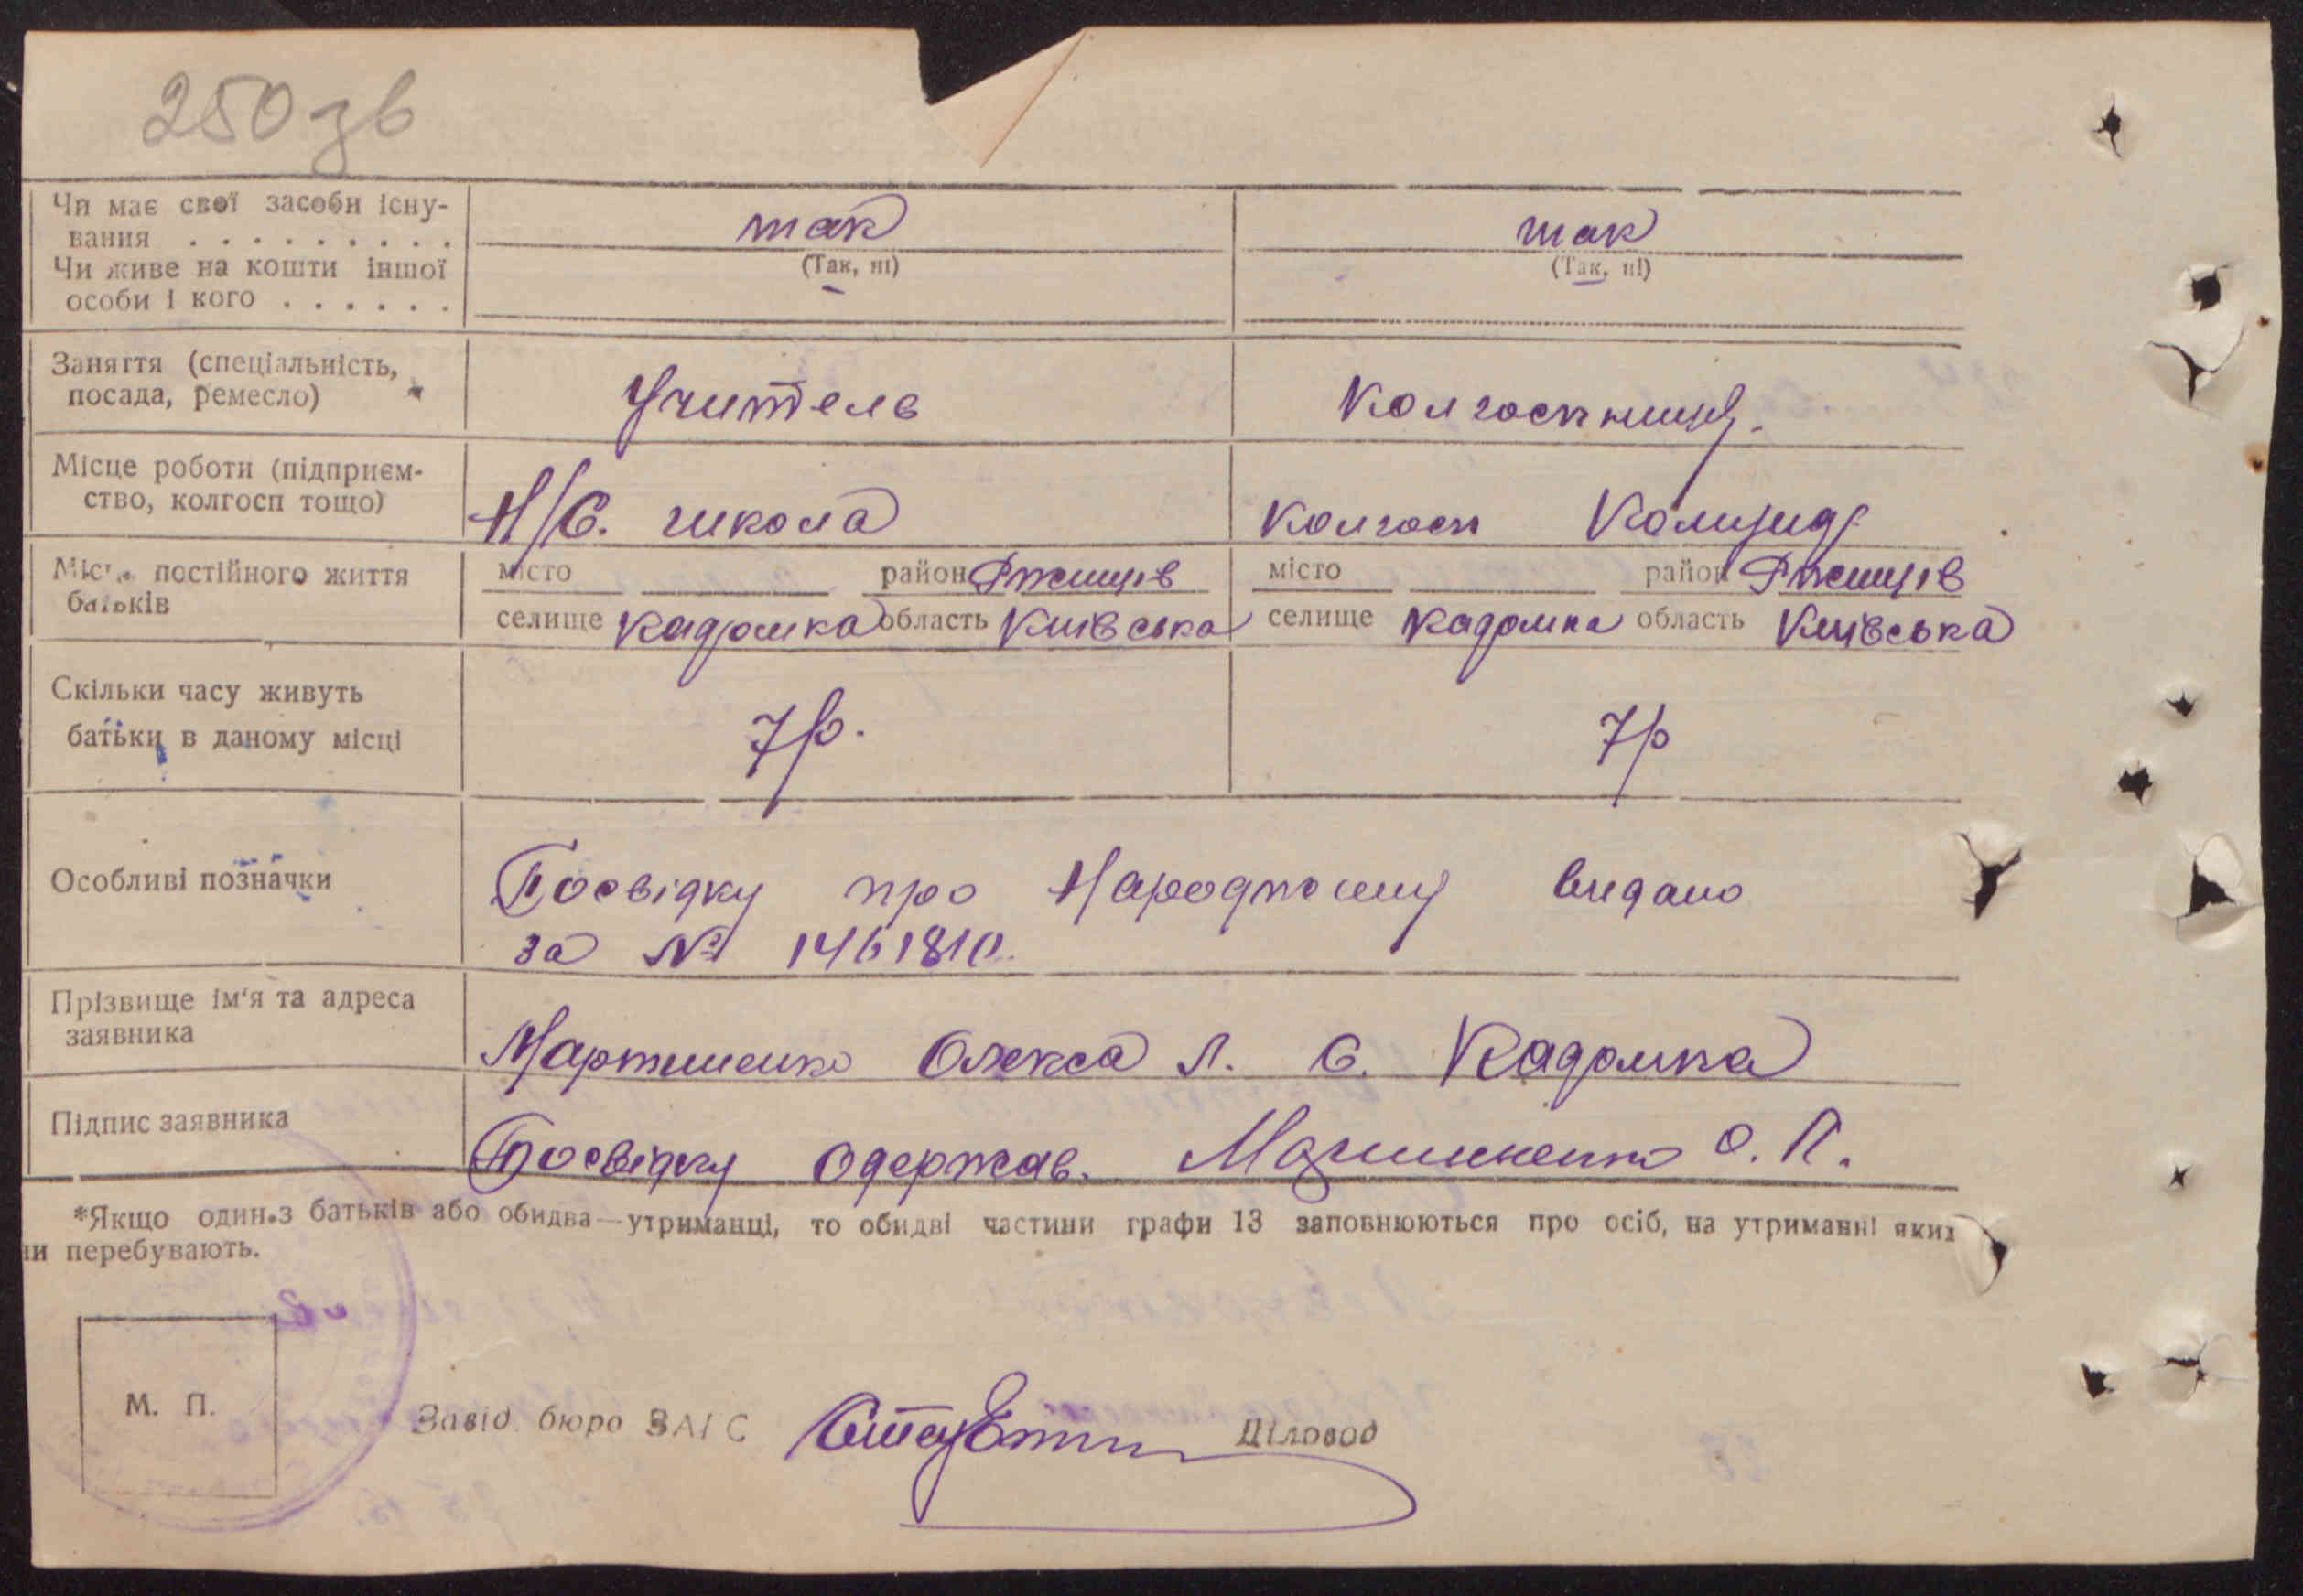 250 зв
Чи має свої засоби існу-
вання . . . . . . . . . так так
Чи живе на кошти іншої (Так, ні) (Так, ні)
особи і кого . . . . . .
Заняття (спеціальність,
посада, ремесло) Учитель Колгоспниця.
Місце роботи (підприєм-
ство, колгосп тощо) Н/С. школа колгосп
Місце постійного життя місто район Ржищів місто район Ржищів
батьків селище Кадомка область Київська селище Кадомка область Київська
Скільки часу живуть
батьки в даному місці 7 р. 7 р
Особливі позначки Посвідку про Народження видано
за № 1461810.
Прізвище ім'я та адреса
заявника Мартиненко Олекса Л. С. Кадомка
Підпис заявника Посвідку одержав. О. Л.
*Якщо один з батьків або обидва—утриманці, то обидві частини графи 13 заповнюються про осіб, на утриманні яких
ни перебувають.
М. П.
Завід. бюро ЗАГС Діловод